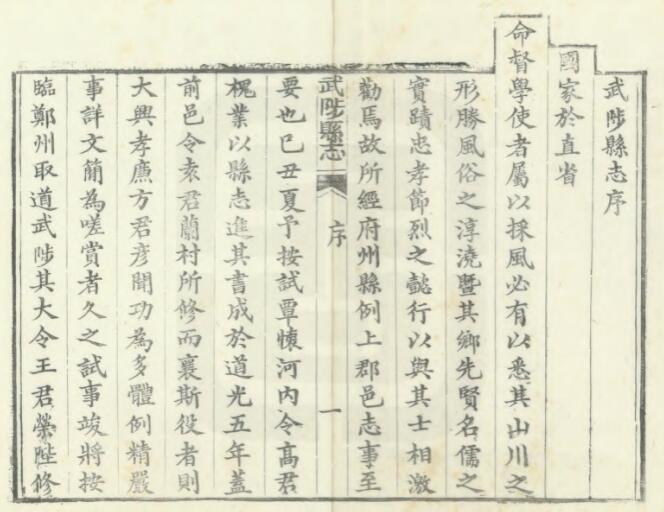 武陟縣志序
國家於直省
命督學使者屬以採風必有以悉其山川之
形勝風俗之淳澆暨其鄉先賢名儒之
實蹟忠孝節烈之懿行以與其士相激
勸焉故所經府州縣例上郡邑志事至
武陟縣志 序 一
要也己丑夏予按試覃懷河内令高君
槐業以縣志進其書成於道光五年蓋
前邑令袁君蘭村所修而襄斯役者則
大興孝廉方君彥聞功為多體例精嚴
事詳文簡為嗟賞者久之試事竣將按
臨鄭州取道武陟其大令王君榮陛修